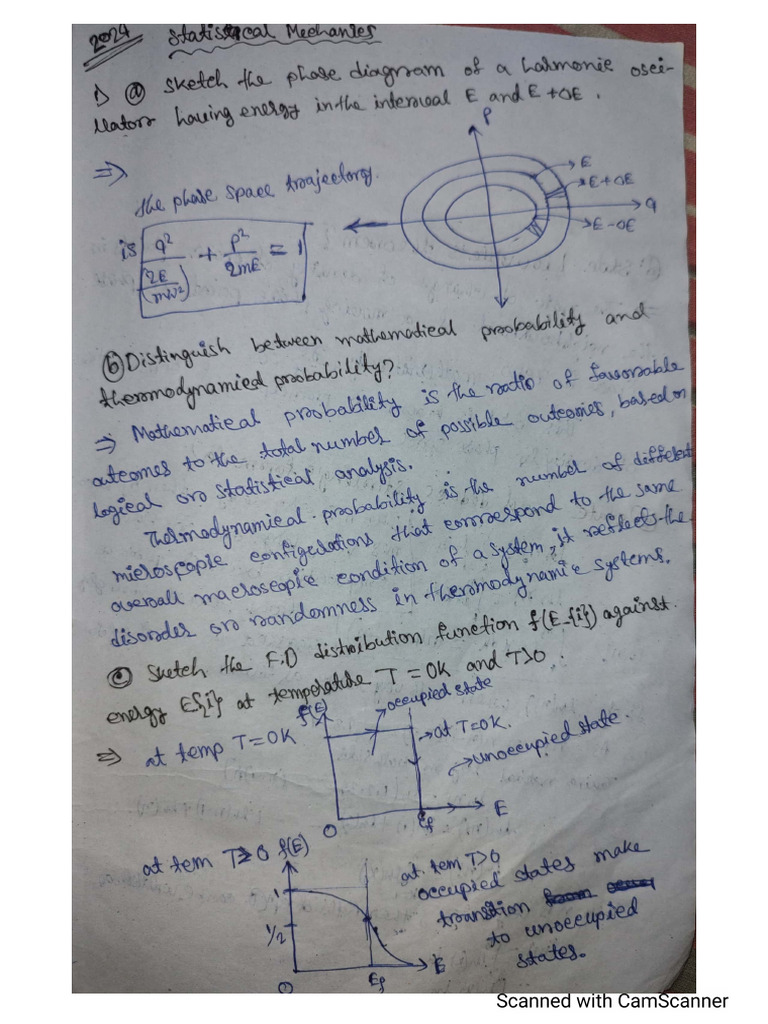 2024 Statistical Mechanics
1) (a) Sketch the phase diagram of a harmonic osci-
llators having energy in the interval E and E+δE.
P
⇒ the phase space trajectory.
E
E+δE
q
E-δE
is q²/(2E/mω²) + p²/2mE = 1
(b) Distinguish between mathematical probability and
thermodynamical probability?
⇒ Mathematical probability is the ratio of favorable
outcomes to the total number of possible outcomes, based on
logical or statistical analysis.
Thermodynamical probability is the number of different
microscopic configurations that correspond to the same
overall macroscopic condition of a system, it reflects the
disorder or randomness in thermodynamic systems.
(c) Sketch the F.D distribution function f(E_{i}) against
energy E{i} at temperature T = 0K and T>0.
⇒ at temp T=0K
f(E)
occupied state
at T=0K.
unoccupied state.
0
Ef
E
at tem T>0 f(E)
1
1/2
0
Ef
E
at tem T>0
occupied states make
transition
to unoccupied
states.
Scanned with CamScanner